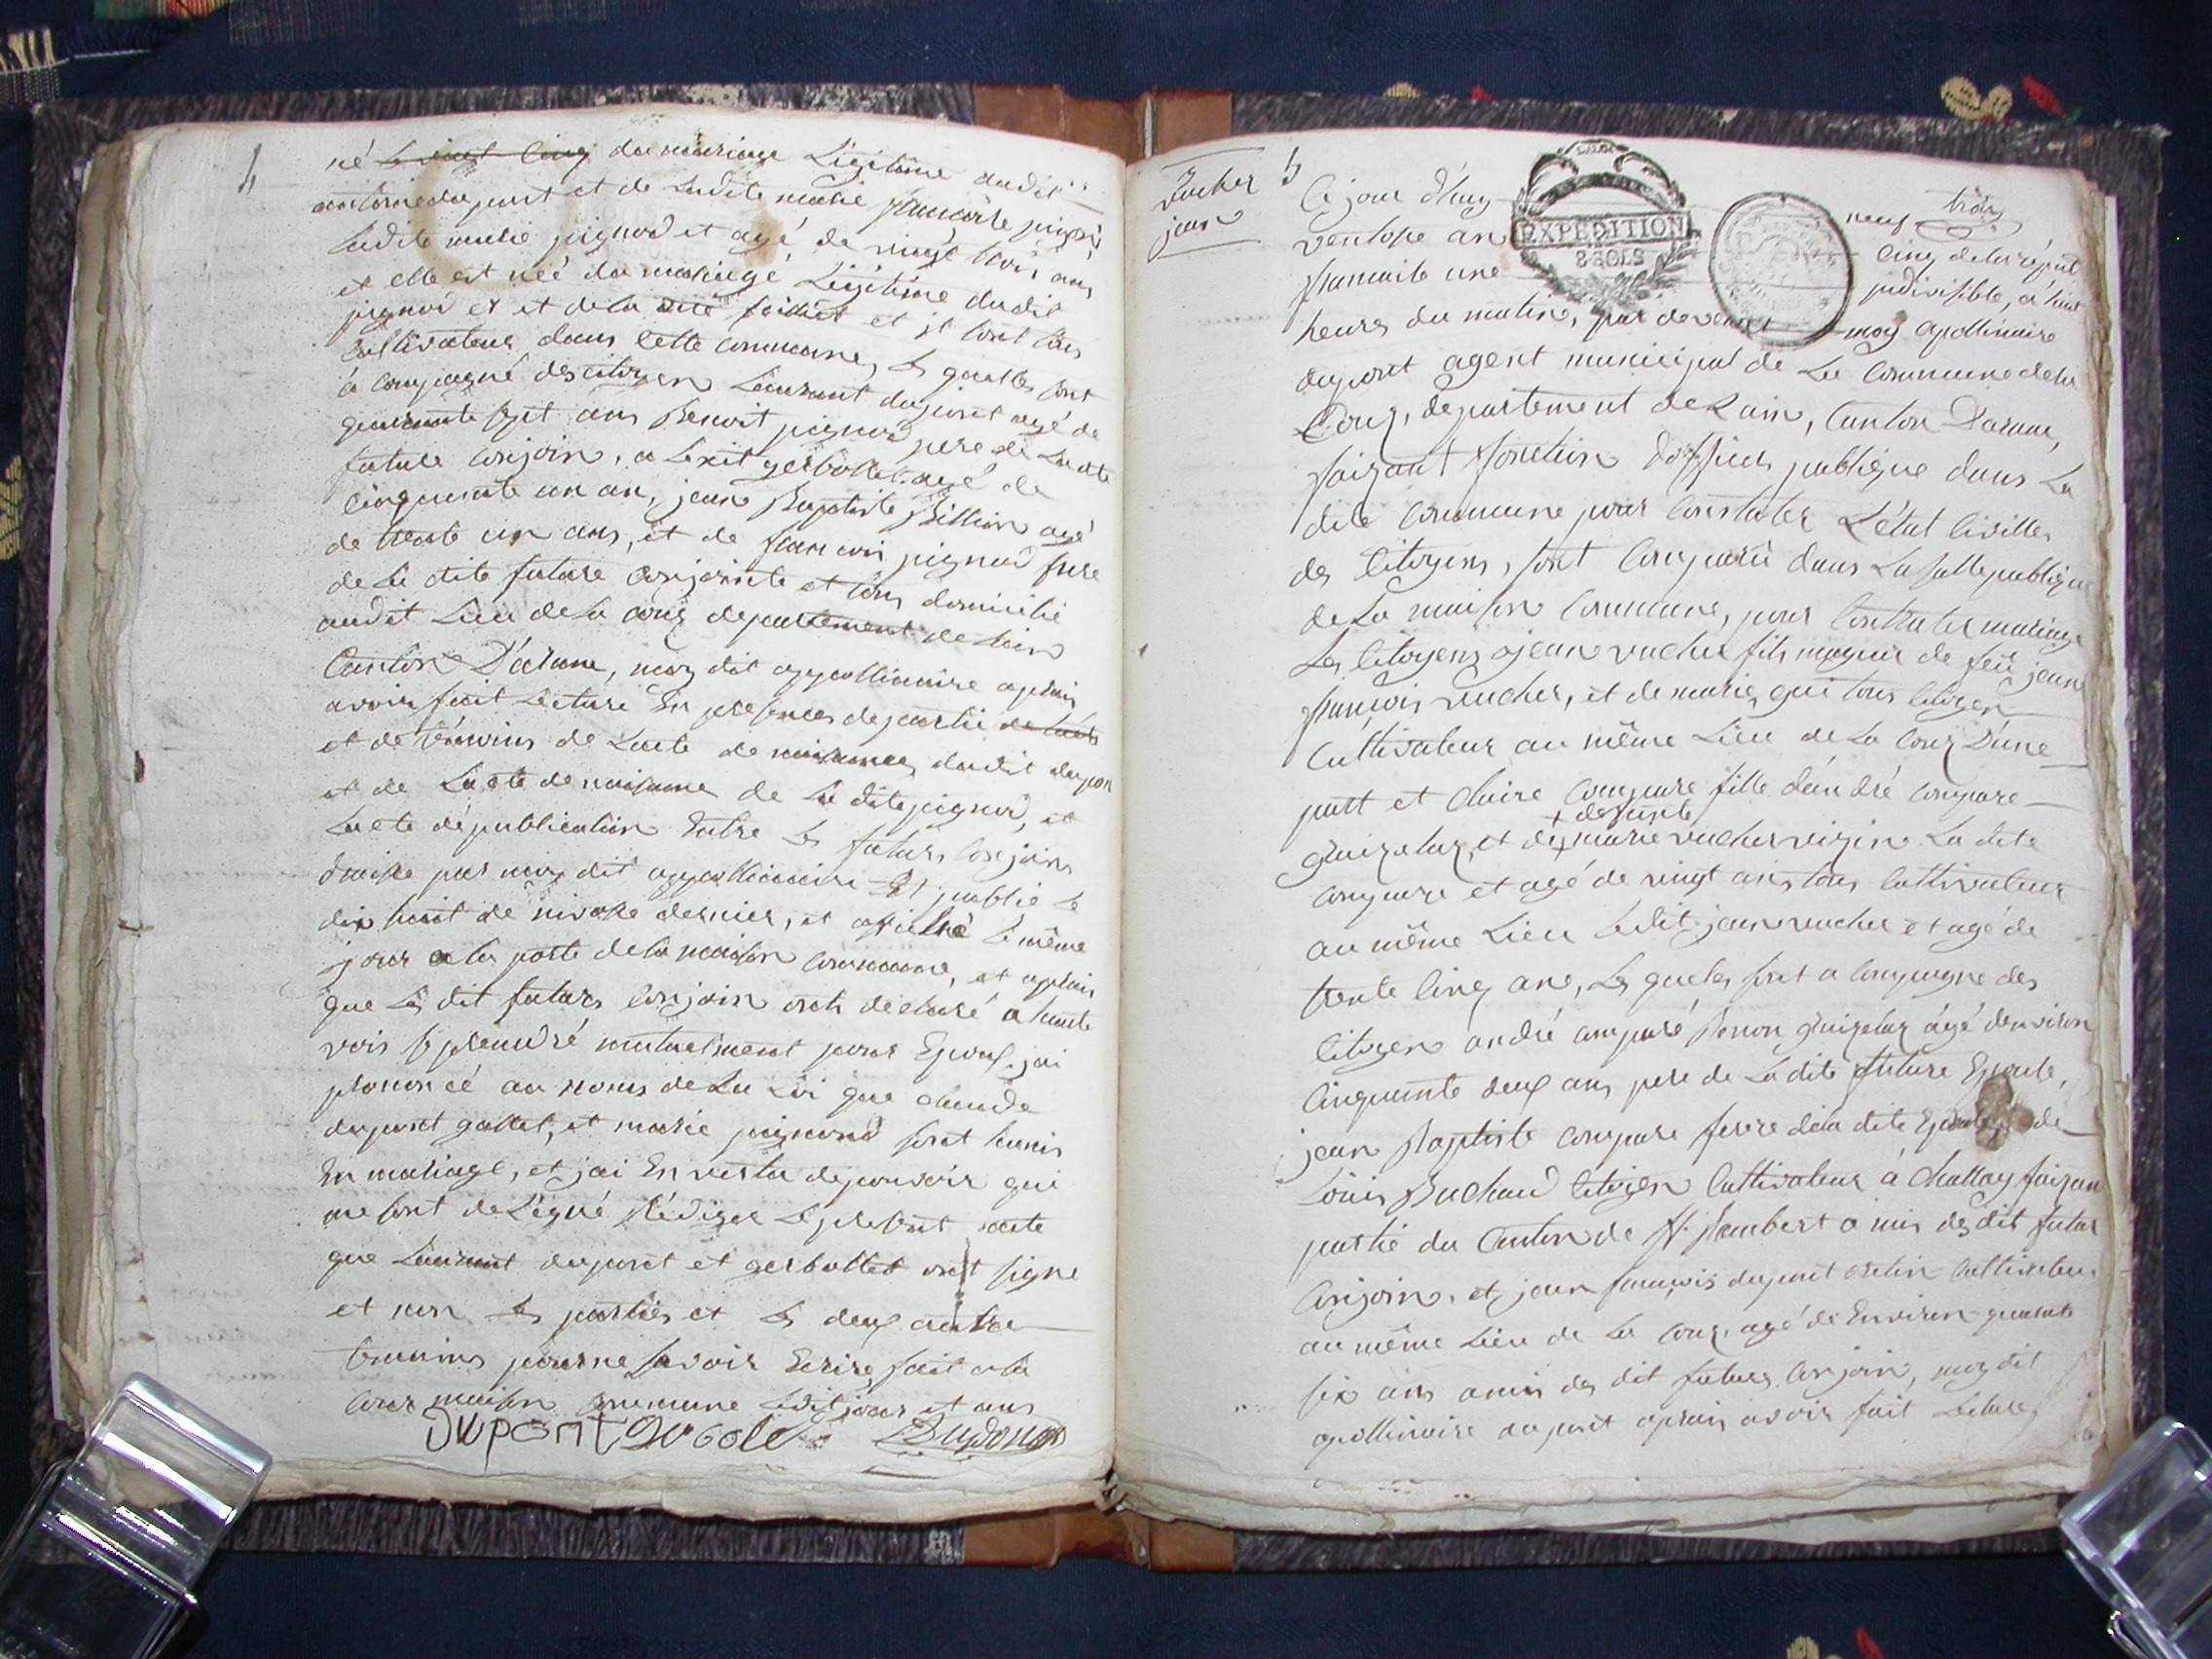 4
né le vingt cinq du mariage Légitime dudit
antoine dupont et de Ladite marie françoise
Ladite marie pignod et agé de vingt trois ans
et elle est née du mariage Légitime dudit
pignod et et de la et st sont tous
Cultivateur dans Cette commune, Les quelles sont
a compagné des citoyen Laurant dupont agé de
quarante sept ans Benoit pignod pere de Ladite
future conjoin, a Lexit gerbollet agé de
Cinquante un an, jean Baptiste Billion agé
de trente un ans, et de francoi pignod frere
de La dite future Conjointe et tous domicilié
audit Lieu de La couz departement de Lain
Canton D'arane, moy dit appollinaire aprais
avoir fait Lecture En presences de partie
et de témoins de Lacte de naisances dudit dupon
et de Lacte de naisanse de La dite pignod, et
Lacte de publication Entre Les futurs conjoins
par moy dit appollinaire Et publié Le
dix huit de nivose dernier, et affiché Le même
jour a la porte de la maison commune, et aprais
que Les dit futurs conjoin onts declaré a haute
vois se prendré mutuelment pour Epoux, jai
prononcé au noms de La Loi que claude
dupont gallet, et marie pignod sont hunis
En mariage, et jai En vertu de pouvoir qui
me sont delégué rédiger Le present acte
que Laurant dupont et gerbollet ont signe
et non Les parties et Les deux autre
temoins pour ne savoir Ecrire, fait a la
couz maison commune Ledit jour et ans
Dupont
Dupont
Vucher
jean
5
Ce jour d'huy neuf trois
ventose an cinq de la républ
francaise une indivisible, a huit
heures du matin, par devent moy apollinaire
dupont agent municipal de La Commune de la
Couz, departement de Lain, Canton Darane,
faizant fonction dofficier publique dans La
dite commune pour constater L'état Civilles
des Citoyens, sont Comparu dans La salle publique
de La maison Commune, pour Contracter mariage
Les Citoyens jean vucher fils mageur de feu jean
françois vucher, et de marie, qui tous Citoyen
Cultivateur au même Lieu de La Couz D'une
part et Claire compare fille d'andré compare
defunte
guizelaz, et de marie vucher La dite
compare et agé de vingt ans tous Cultivateur
au même Lieu Ledit jean vucher et agé de
trente cinq ans, Les quelles sont a compagne des
Citoyen andré comparé guizelaz agé denviron
Cinquante deux ans pere de La dite future Epouse,
jean Baptiste compare frere déla dite Epouse, de
Louis Buchaud Citoyen Cultivateur á challay faizan
partie du Canton de St. Rambert a mis des dit futur
Conjoin, et jean françois dupont Cultivateur
au même Lieu de La couz, agé de Environ quarante
six ans amis des dit futurs Conjoin, moy dit
apollinaire dupont aprais avoir fait Lecture
EXPEDITION
8 SOLS